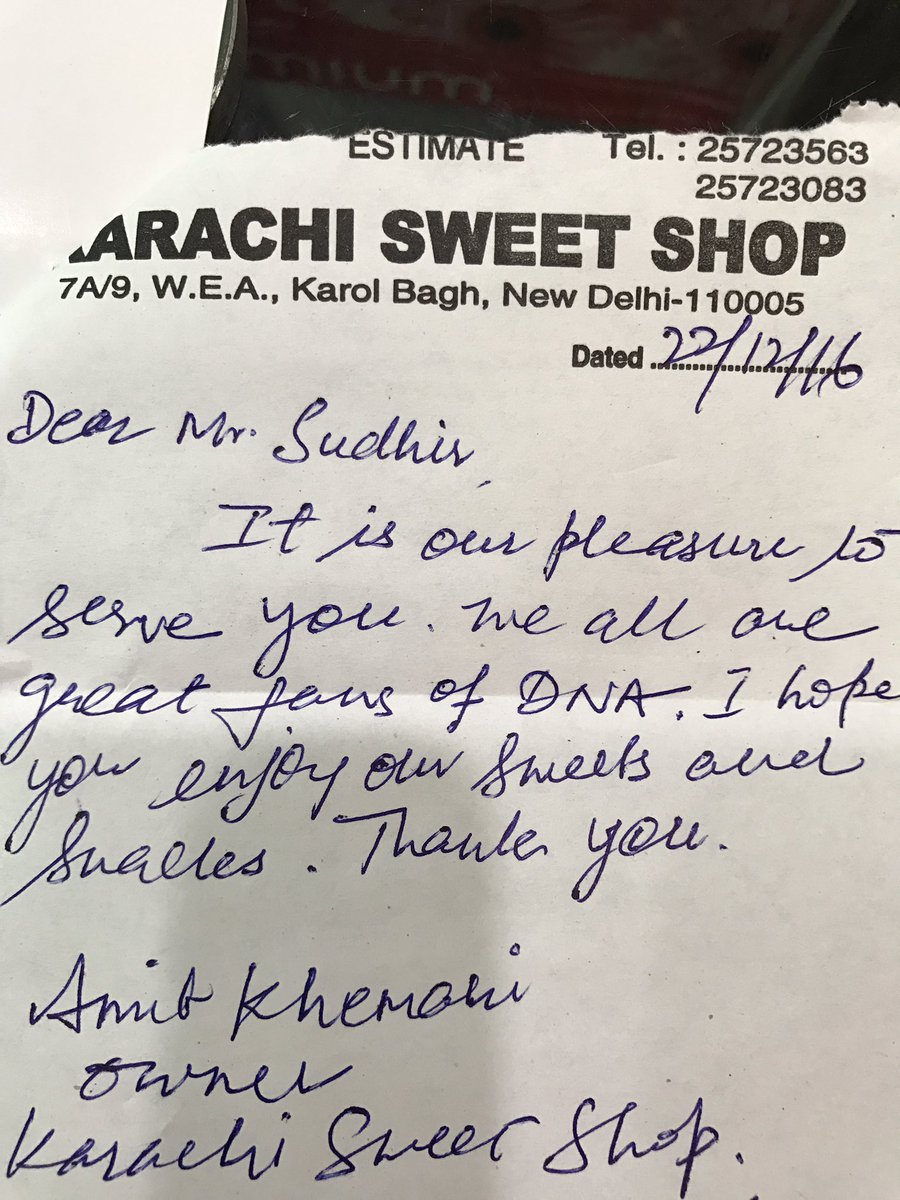 ESTIMATE Tel. : 25723563
25723083
KARACHI SWEET SHOP
7A/9, W.E.A., Karol Bagh, New Delhi-110005
Dated 22/12/16
Dear Mr. Sudhir,
It is our pleasure to
serve you. We all are
great fans of DNA. I hope
you enjoy our sweets and
Snacks. Thank you.
Amit Khemani
Owner
Karachi Sweet Shop.